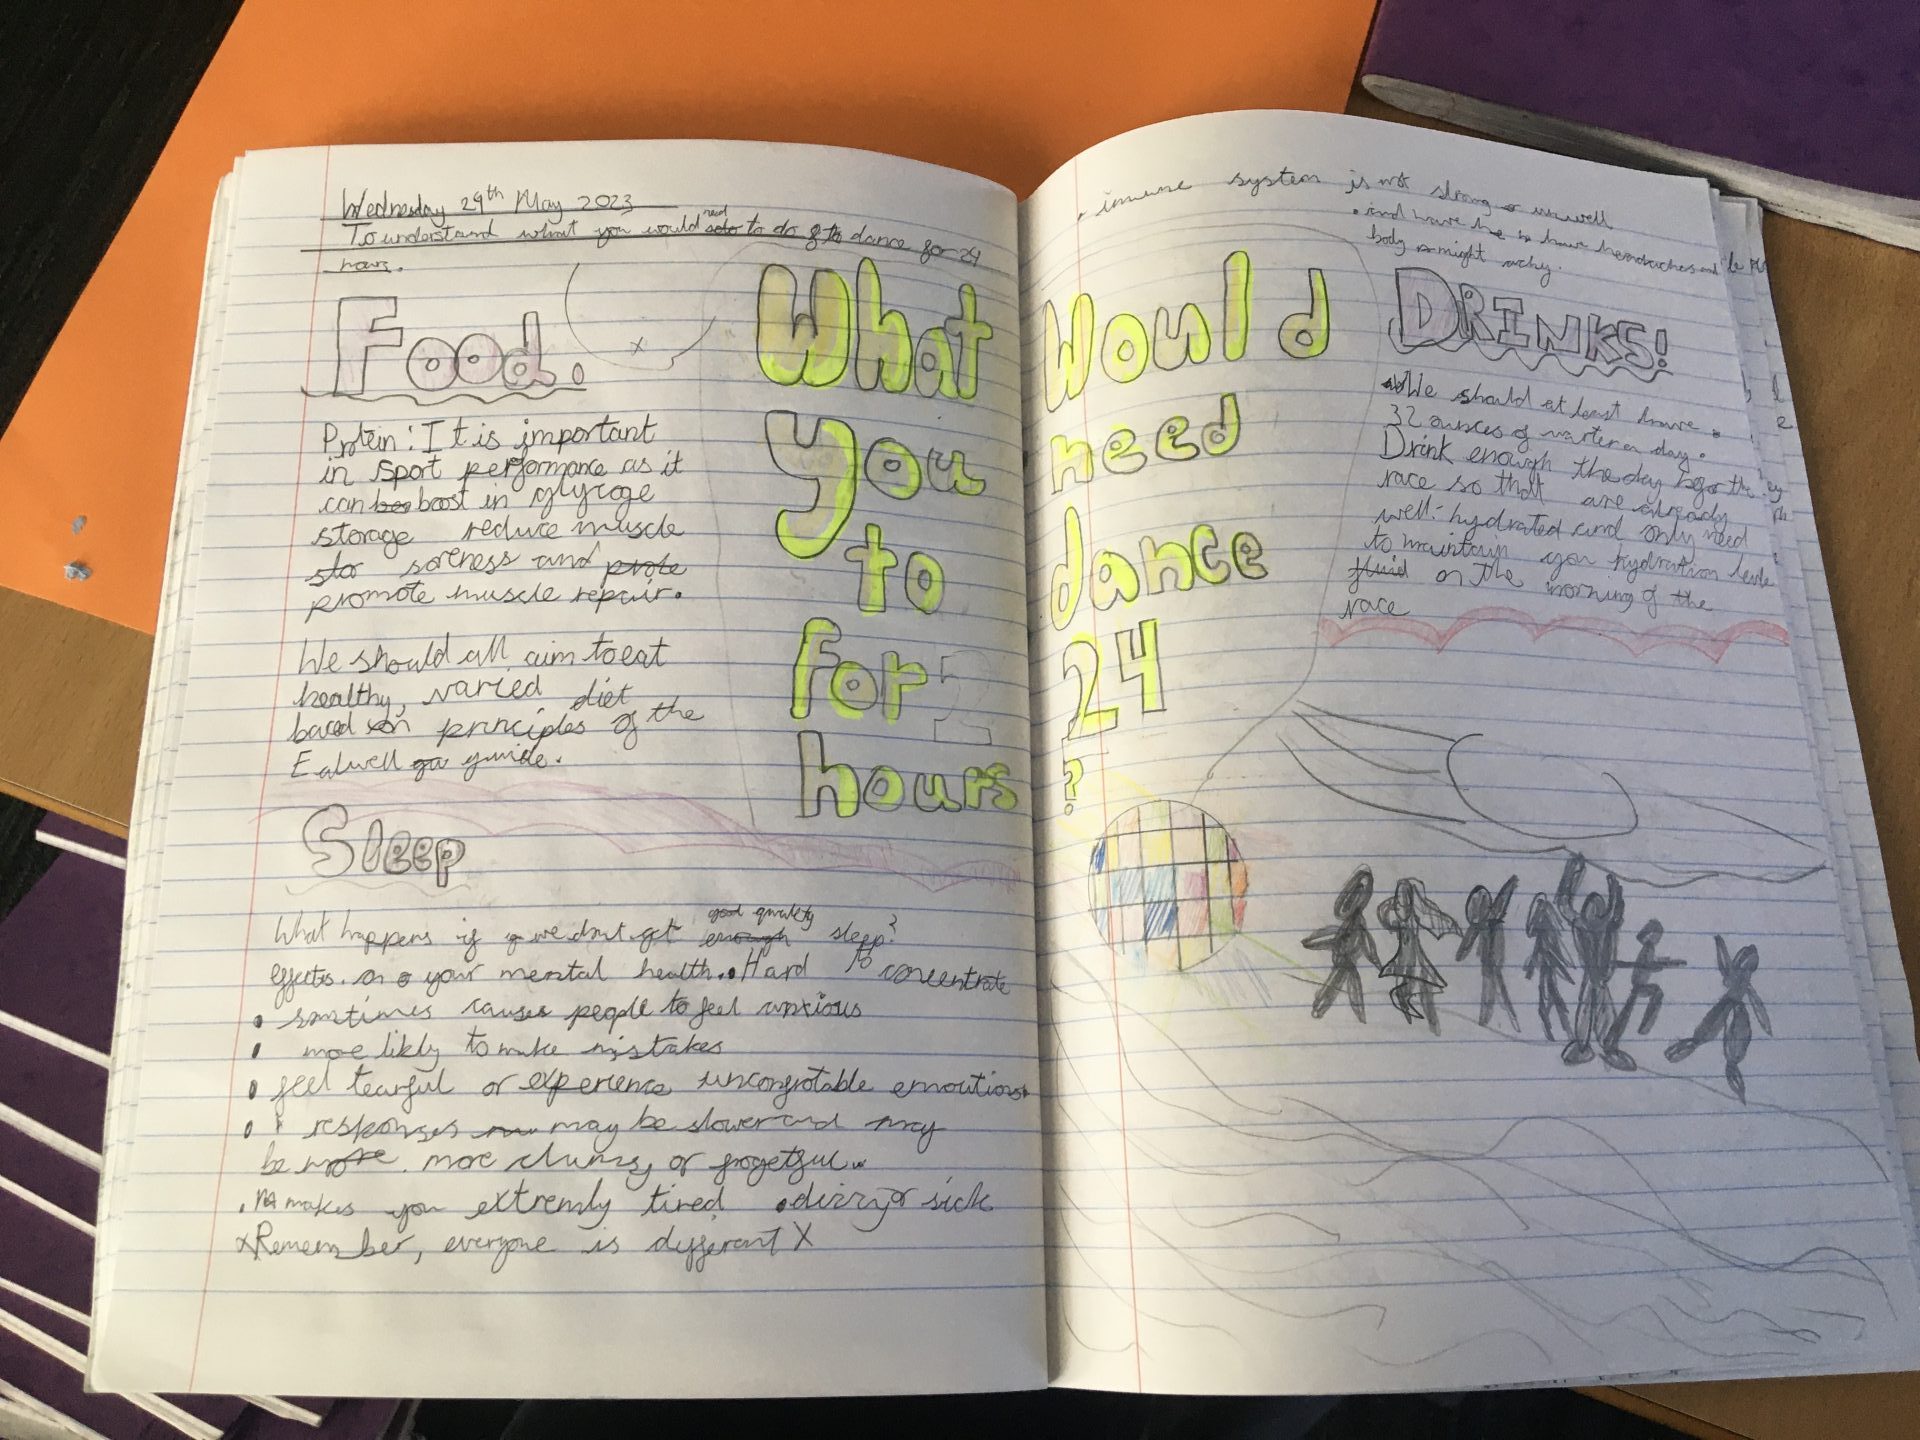 Wednesday 29th May 2023
To understand what you would need to do to dance for 24
hours.
Food.
Protein: It is important
in sport performance as it
can boost in glycoge
storage reduce muscle
soreness and
promote muscle repair.
We should all aim to eat
healthy, varied diet
based on principles of the
Eatwell guide.
Sleep
What happens if we dont get good quality sleep?
effectes on your mental health. • Hard to concentrate
• somtimes causes people to feel anxious
• more likely to make mistakes
• feel tearful or experience uncomfrotable emoutions
• responses may be slower and may
be more clumsy or frogetful.
• makes you extremly tired • dizzy or sick
x Remember, everyone is different X
What Would
you need
to dance
for 24
hours ?
• imune system is not strong or unwell
• and have headaches and
body might achy.
DRINKS!
We should at least have
32 ounces of water a day.
Drink enough the day befor the
race so that are already
well-hydrated and only need
to maintain your hydration levels
on the morning of the
race